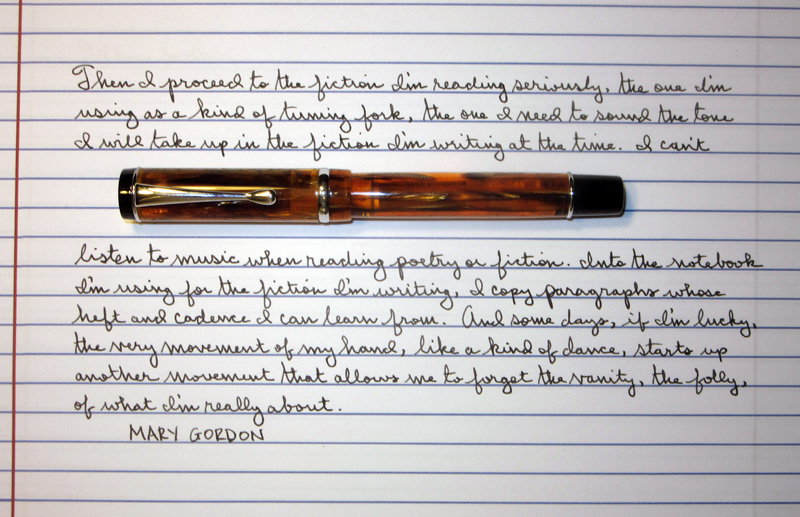 Then I proceed to the fiction I'm reading seriously, the one I'm
using as a kind of tuning fork, the one I need to sound the tone
I will take up in the fiction I'm writing at the time. I can't
listen to music when reading poetry or fiction. Into the notebook
I'm using for the fiction I'm writing, I copy paragraphs whose
heft and cadence I can learn from. And some days, if I'm lucky,
the very movement of my hand, like a kind of dance, starts up
another movement that allows me to forget the vanity, the folly,
of what I'm really about.
MARY GORDON